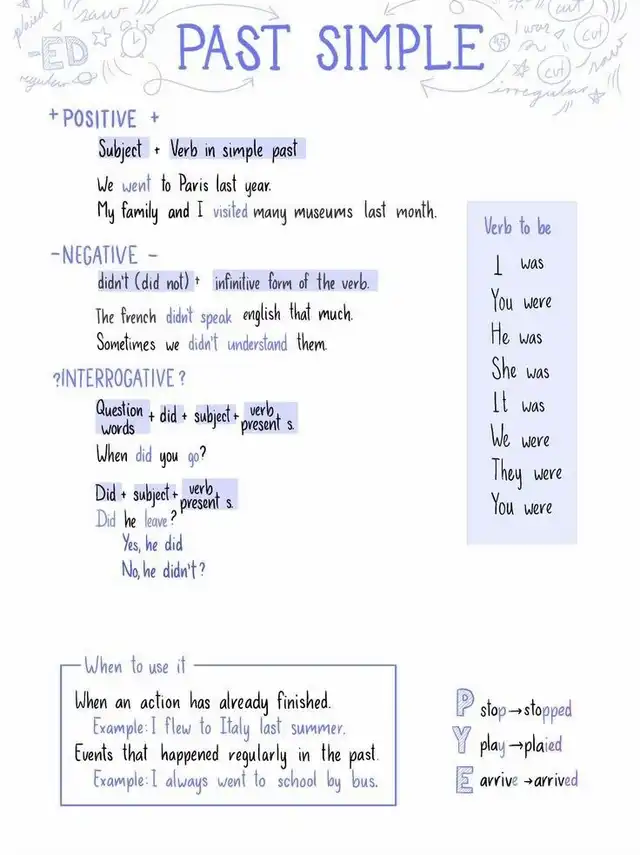 plaied
-ED
regular
saw
PAST SIMPLE
I was
cut
cut
cut
saw
irregular
+ POSITIVE +
Subject + Verb in simple past
We went to Paris last year.
My family and I visited many museums last month.
- NEGATIVE -
didn't (did not) + infinitive form of the verb.
The french didn't speak english that much.
Sometimes we didn't understand them.
?INTERROGATIVE?
Question words + did + subject + verb present s.
When did you go?
Did + subject + verb present s.
Did he leave?
Yes, he did
No, he didn't?
Verb to be
I was
You were
He was
She was
It was
We were
They were
You were
When to use it
When an action has already finished.
Example: I flew to Italy last summer.
Events that happened regularly in the past.
Example: I always went to school by bus.
P stop→stopped
Y play→plaied
E arrive→arrived